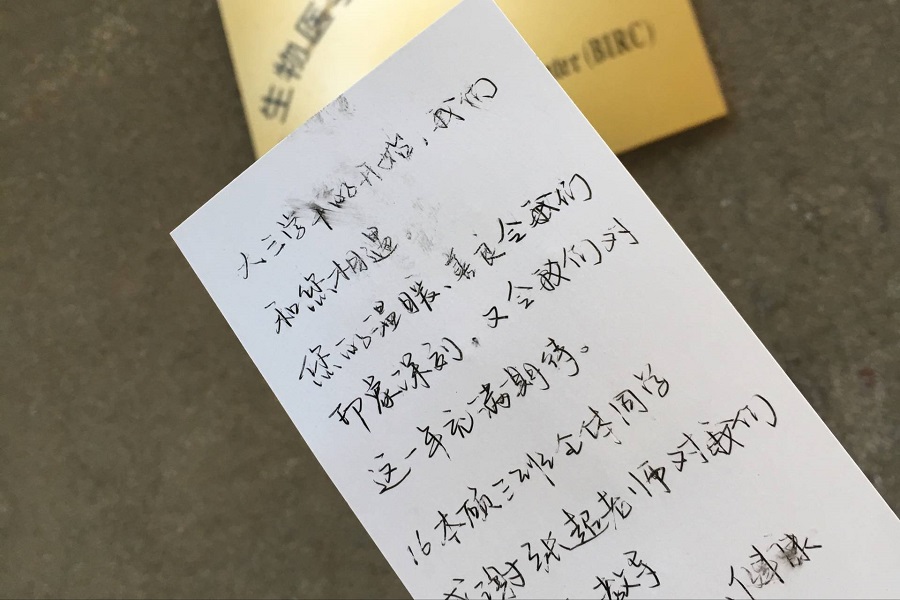 生物医学
nter (BIRC)
大三学年的开始，我们
和您相遇
您的温暖、善良令我们
印象深刻，又令我们对
这一年充满期待。
16本硕三班全体同学
感谢张超老师对我们
教导
健康